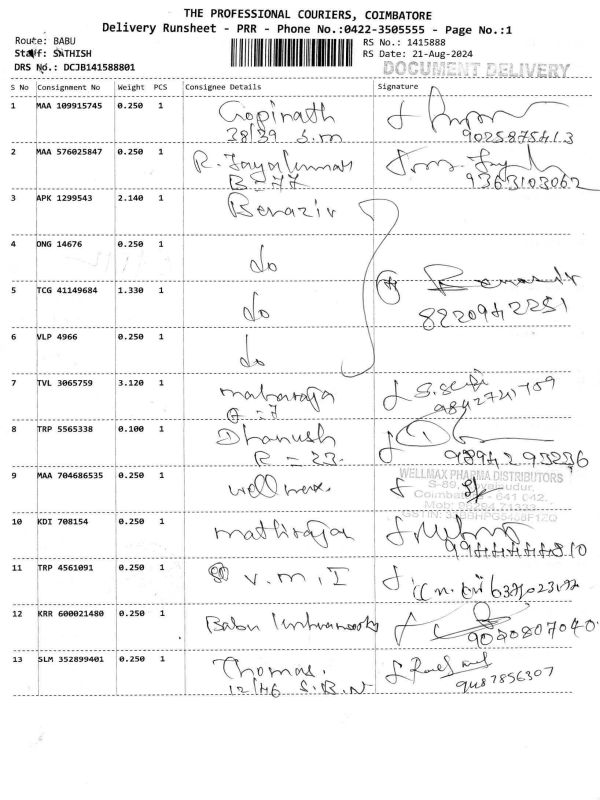 THE PROFESSIONAL COURIERS, COIMBATORE
Delivery Runsheet - PRR - Phone No.:0422-3505555 - Page No.:1
Route: BABU
RS No.: 1415888
Staff: SATHISH
RS Date: 21-Aug-2024
DRS No.: DCJB141588801
DOCUMENT DELIVERY
S No Consignment No Weight PCS Consignee Details Signature
1 MAA 109915745 0.250 1 Gopinath
38/39 S.M 9025875413
2 MAA 576025847 0.250 1 R. Jayakumar
B = 77 9363103062
3 APK 1299543 2.140 1 Benazir
4 ONG 14676 0.250 1 do
5 TCG 41149684 1.330 1 do
8220942251
6 VLP 4966 0.250 1 do
7 TVL 3065759 3.120 1 maharaja
8 TRP 5565338 0.100 1 Dhanush
R = 23. 9894293236
9 MAA 704686535 0.250 1 wellmax.
WELLMAX PHARMA DISTRIBUTORS
Coimbatore - 641 042.
10 KDI 708154 0.250 1 mathirajan
11 TRP 4561091 0.250 1 V.M.I
12 KRR 600021480 0.250 1 Babu
9020807040
13 SLM 352899401 0.250 1 Thomas.
12/46 S.B.N 9487856307